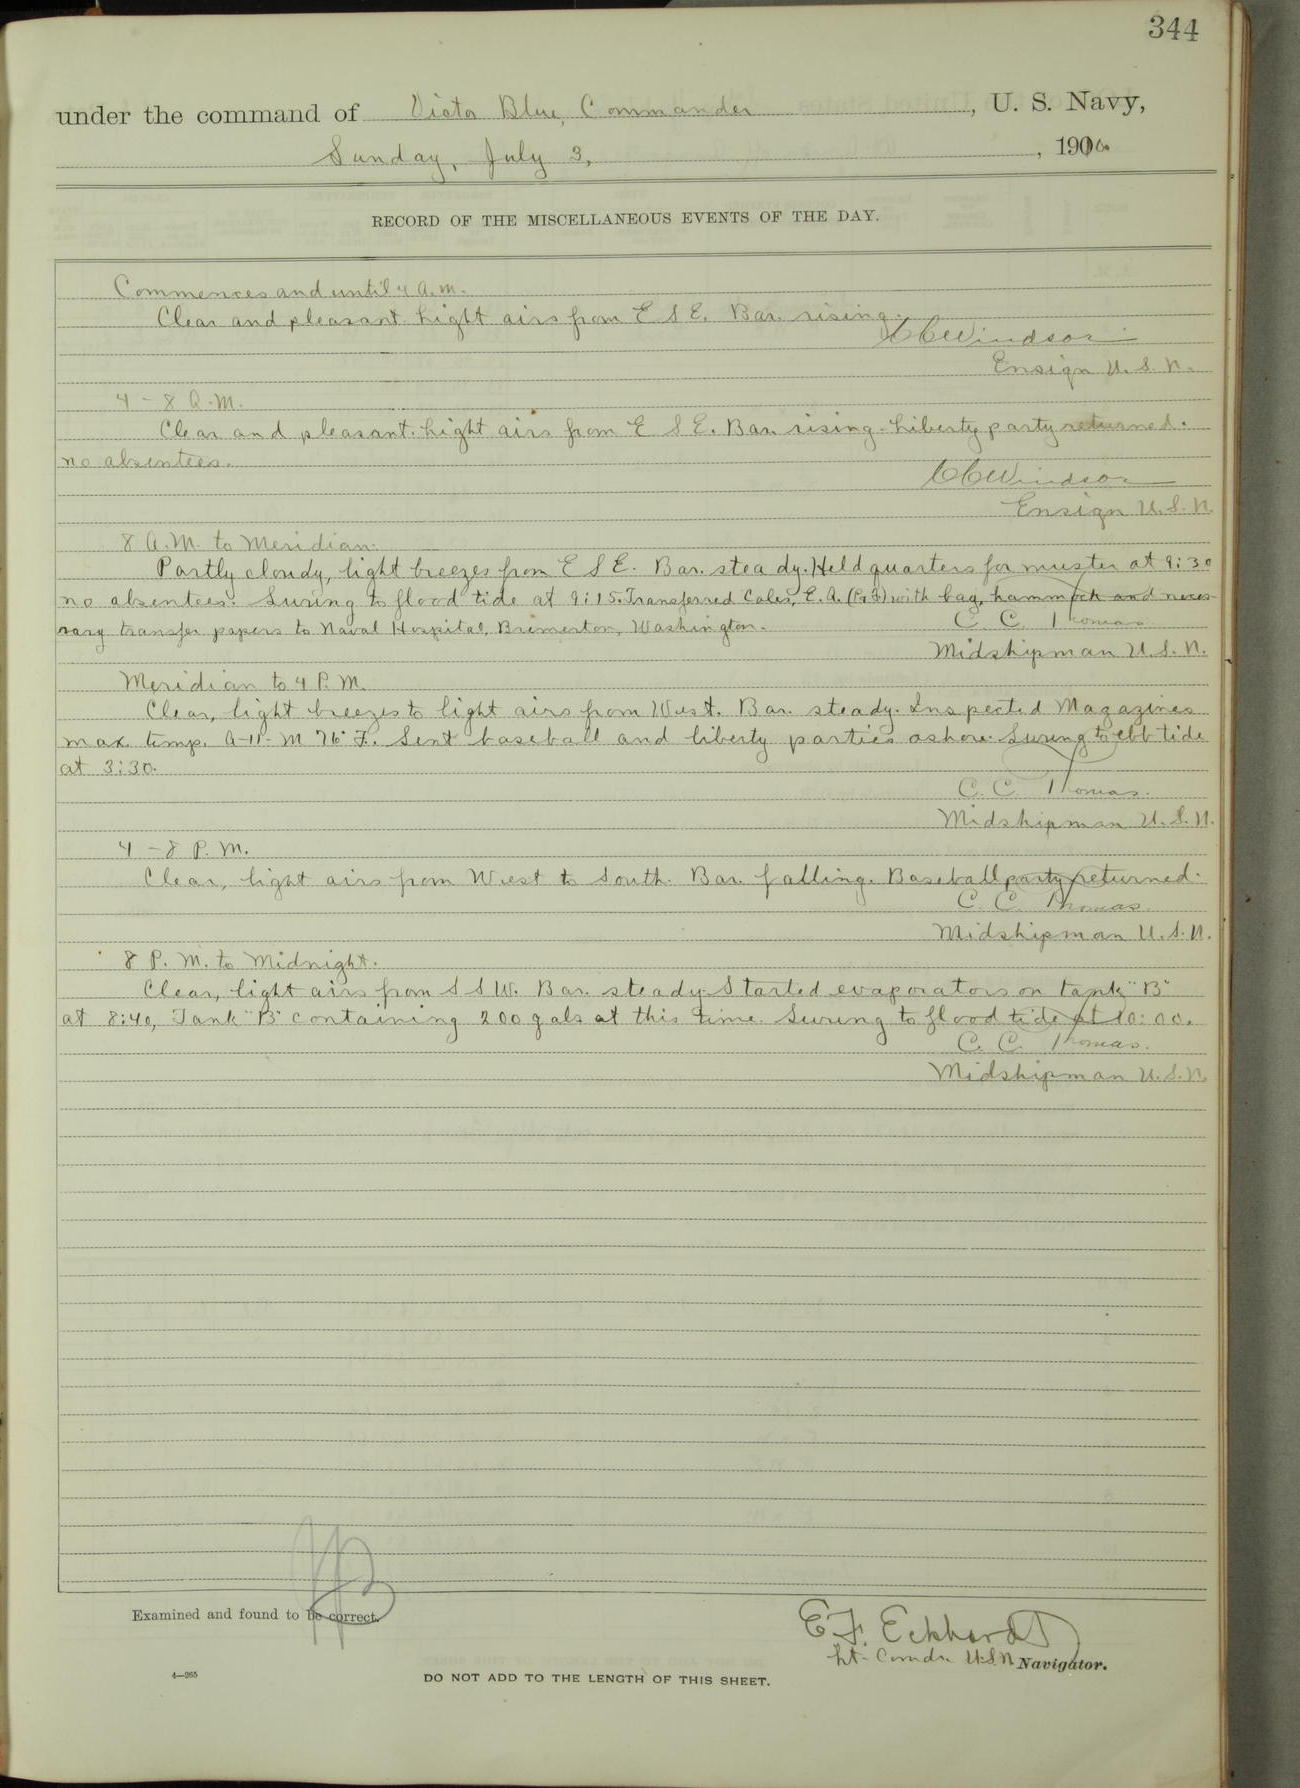 344
under the command of Victor Blue, Commander, U. S. Navy,
Sunday, July 3, , 1910
RECORD OF THE MISCELLANEOUS EVENTS OF THE DAY.
Commences and until 4 a.m.
Clear and pleasant. Light airs from E S E. Bar. rising.
CCWindsor
Ensign U. S. N.
4 - 8 A.M.
Clear and pleasant. Light airs from E S E. Bar. rising. Liberty party returned.
no absentees.
CCWindsor
Ensign U. S. N.
8 A.M. to Meridian.
Partly cloudy, light breezes from E S E. Bar. steady. Held quarters for muster at 9:30
no absentees. Swung to flood tide at 9:15. Transferred Coles, E. A. (P. F.) with bag, hammock and neces-
sary transfer papers to Naval Hospital, Bremerton, Washington.
C. C. Thomas
Midshipman U. S. N.
Meridian to 4 P. M.
Clear, light breezes to light airs from West. Bar. steady. Inspected Magazines
max. temp. A-11-M 76° F. Sent baseball and liberty parties ashore. Swung to ebb tide
at 3:30.
C. C. Thomas.
Midshipman U. S. N.
4 - 8 P. M.
Clear, light airs from West to South. Bar. falling. Baseball party returned.
C. C. Thomas.
Midshipman U. S. N.
8 P. M. to Midnight.
Clear, light airs from S S W. Bar. steady. Started evaporators on tank "B"
at 8:40, Tank "B" containing 200 gals at this time. Swung to flood tide at 10:00.
C. C. Thomas.
Midshipman U. S. N.
Examined and found to be correct.
E. F. Eckhardt
Lt- Comdr. U.S.N. Navigator.
4—265
DO NOT ADD TO THE LENGTH OF THIS SHEET.